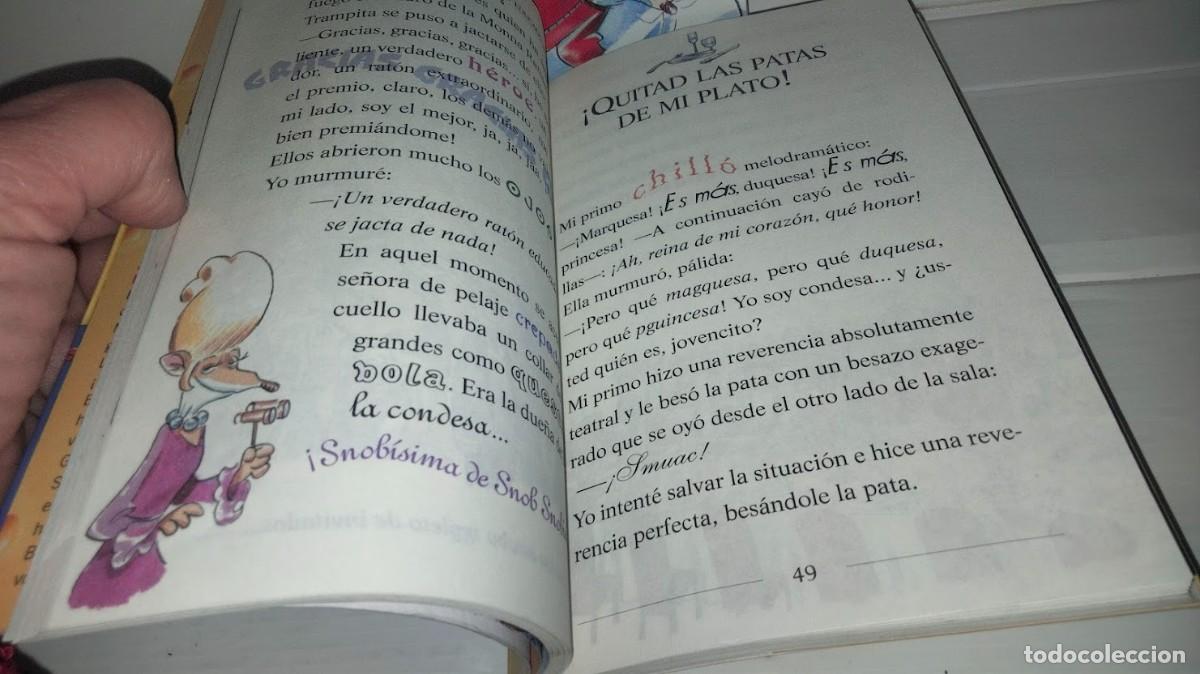 Trampita se puso a jactarse de
—Gracias, gracias, gracias
liente, un verdadero héroe
GRACIAS GRACIAS
dor, un ratón extraordinario
el premio, claro, los demás
mi lado, soy el mejor, ja, ja, jas
bien premiándome!
Ellos abrieron mucho los OJOS
Yo murmuré:
—¡Un verdadero ratón
se jacta de nada!
En aquel momento se
señora de pelaje
cuello llevaba un collar
grandes como
bola. Era la dueña
la condesa...
¡Snobísima de Snob
¡QUITAD LAS PATAS
DE MI PLATO!
Mi primo chilló melodramático:
—¡Marquesa! ¡Es más, duquesa! ¡Es más,
princesa! —A continuación cayó de rodi-
llas—: ¡Ah, reina de mi corazón, qué honor!
Ella murmuró, pálida:
—¡Pero qué magquesa, pero qué duquesa,
pero qué pguincesa! Yo soy condesa... y ¿us-
ted quién es, jovencito?
Mi primo hizo una reverencia absolutamente
teatral y le besó la pata con un besazo exage-
rado que se oyó desde el otro lado de la sala:
—¡Smuac!
Yo intenté salvar la situación e hice una reve-
rencia perfecta, besándole la pata.
49
todocoleccion